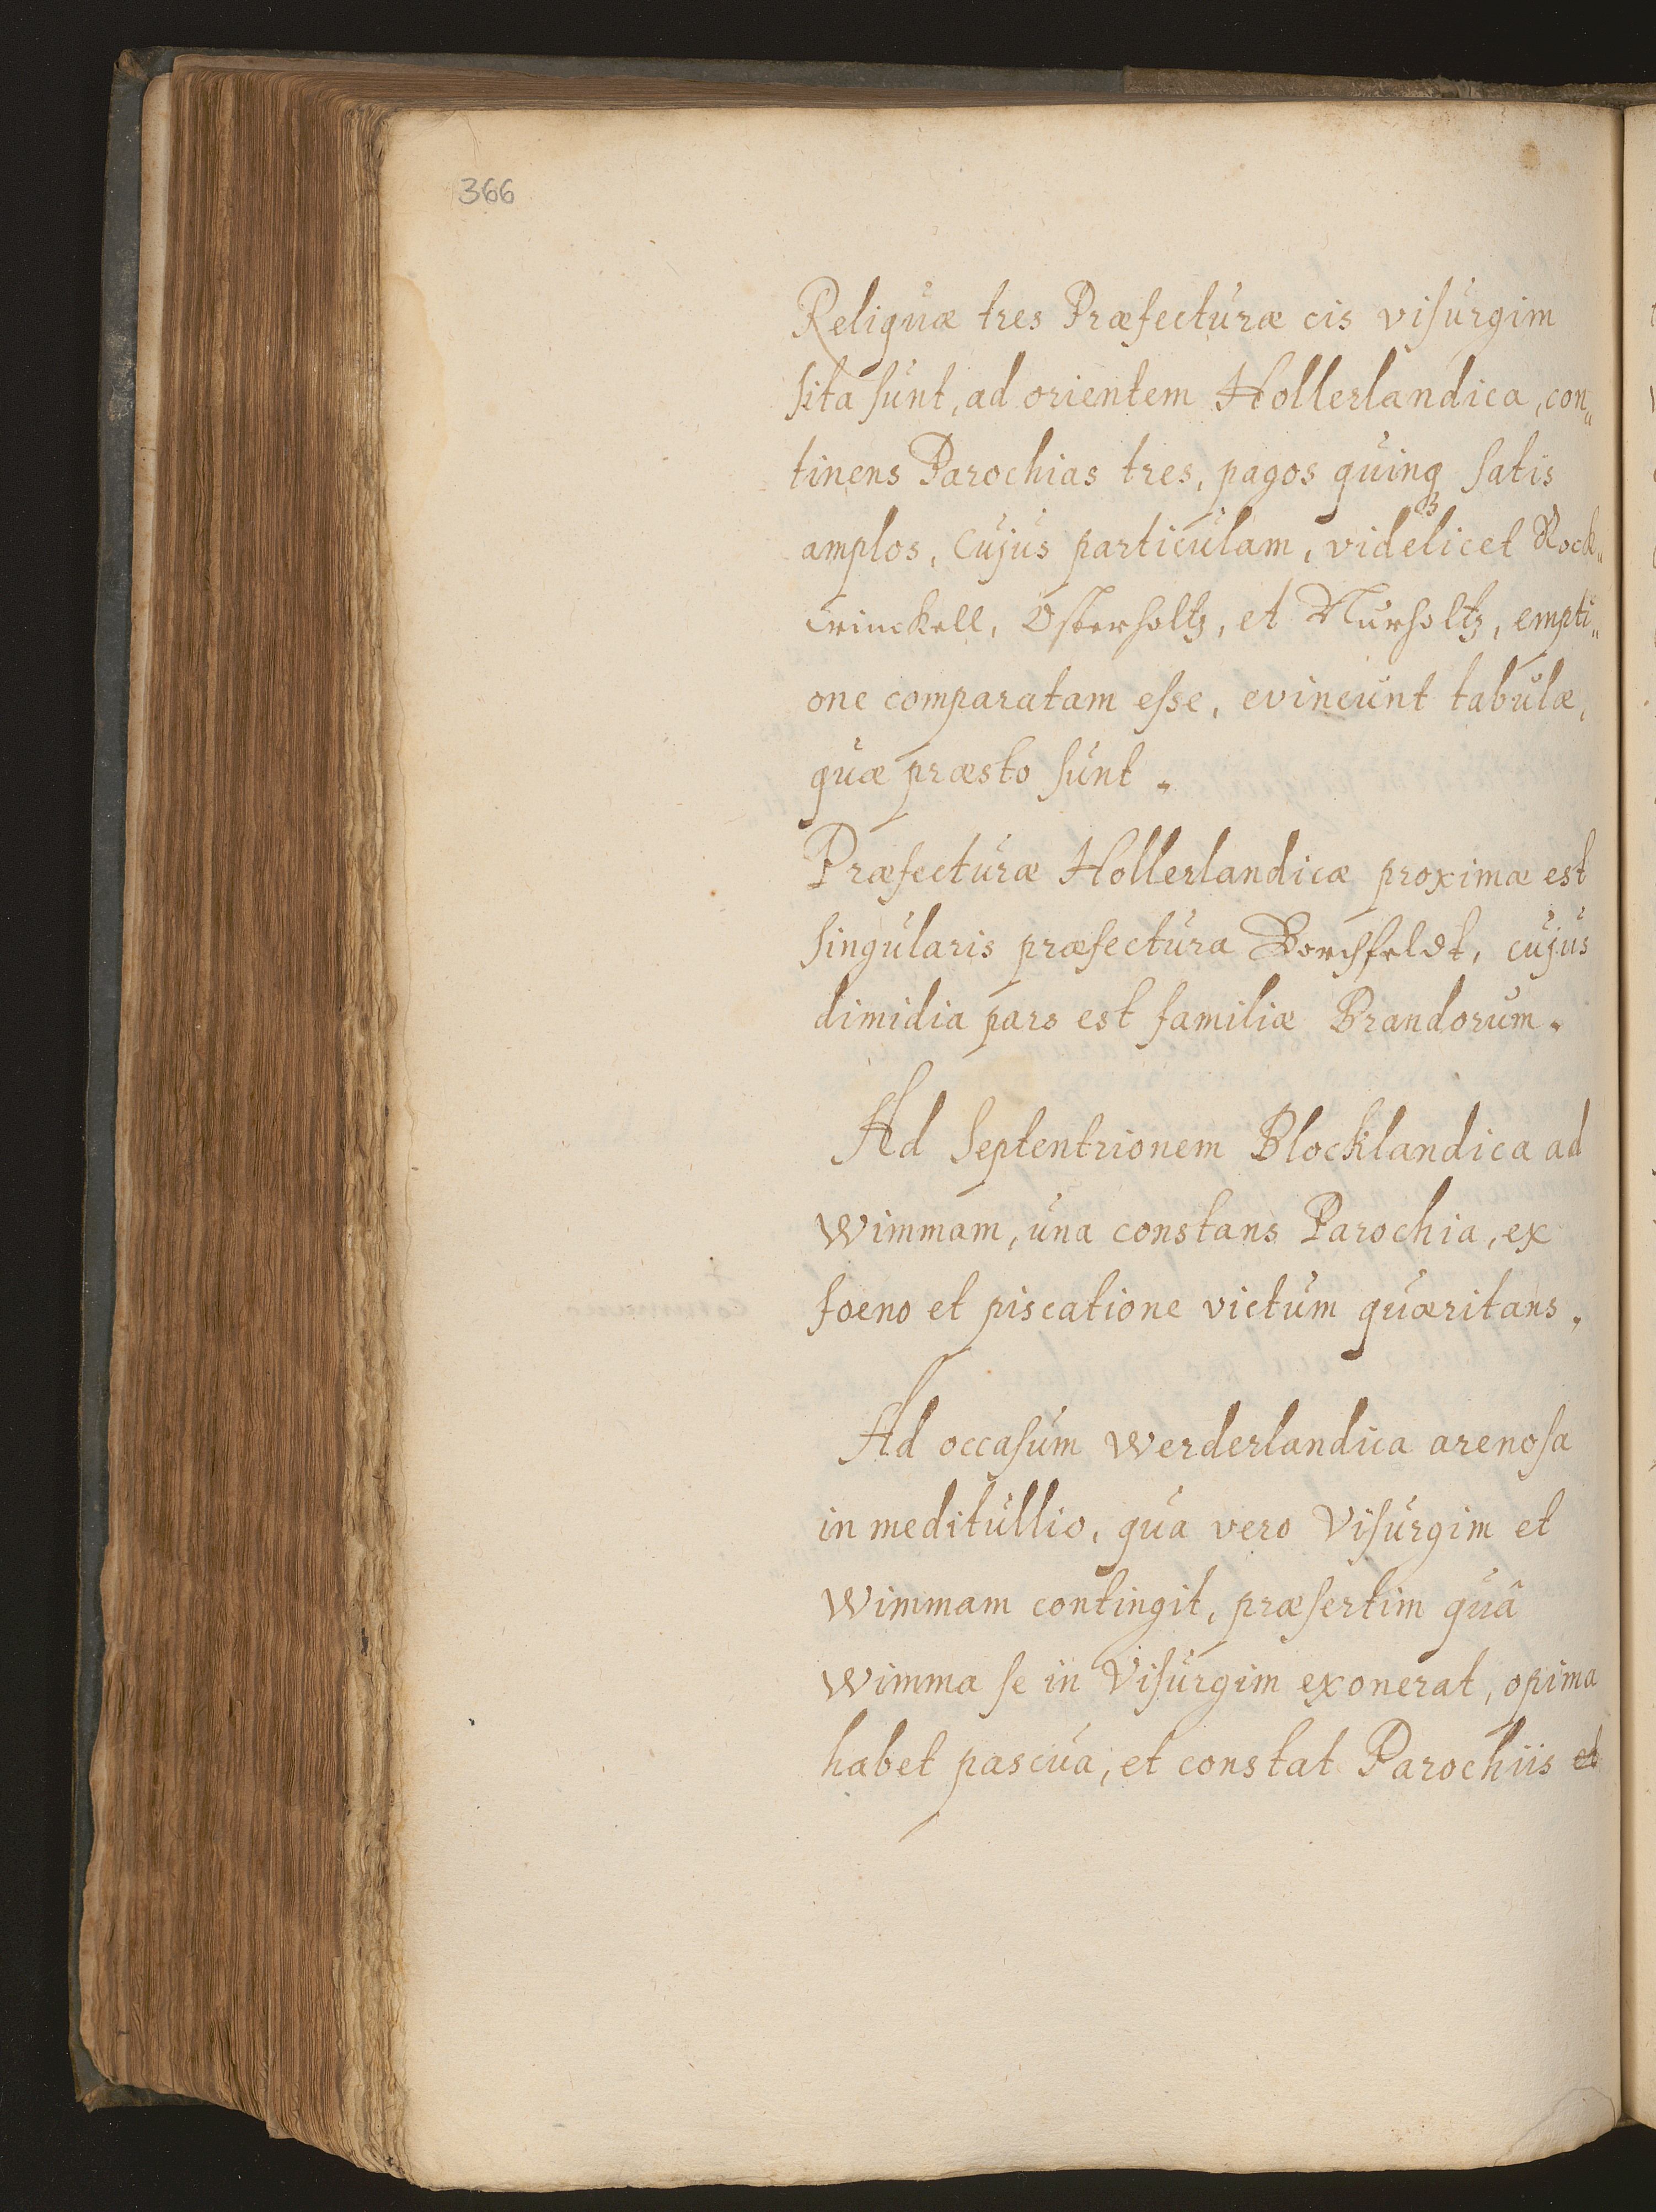 366
Reliquæ tres Præfecturæ cis visurgim
sita sunt, ad orientem Hollerlandica, con„
tinens Parochias tres, pagos quinqꝫ satis
amplos, Cujus particulam, videlicet Rock„
winckell, Osterholtz, et Nurholtz, empti„
one comparatam esse, evincunt tabulæ,
quæ præsto sunt.
Præfecturæ Hollerlandicæ proximæ est
singularis præfectura Borchfeldt, cujus
dimidia pars est familiæ Brandorum.
Ad Septentrionem Blocklandica ad
Wimmam, una constans Parochia, ex
foeno et piscatione victum quæritans.
Ad occasum Werderlandica arenosa
in meditullio, qua vero Visurgim et
Wimmam contingit, præsertim quâ
Wimma se in Visurgim exonerat, opima
habet pascua, et constat Parochiis et